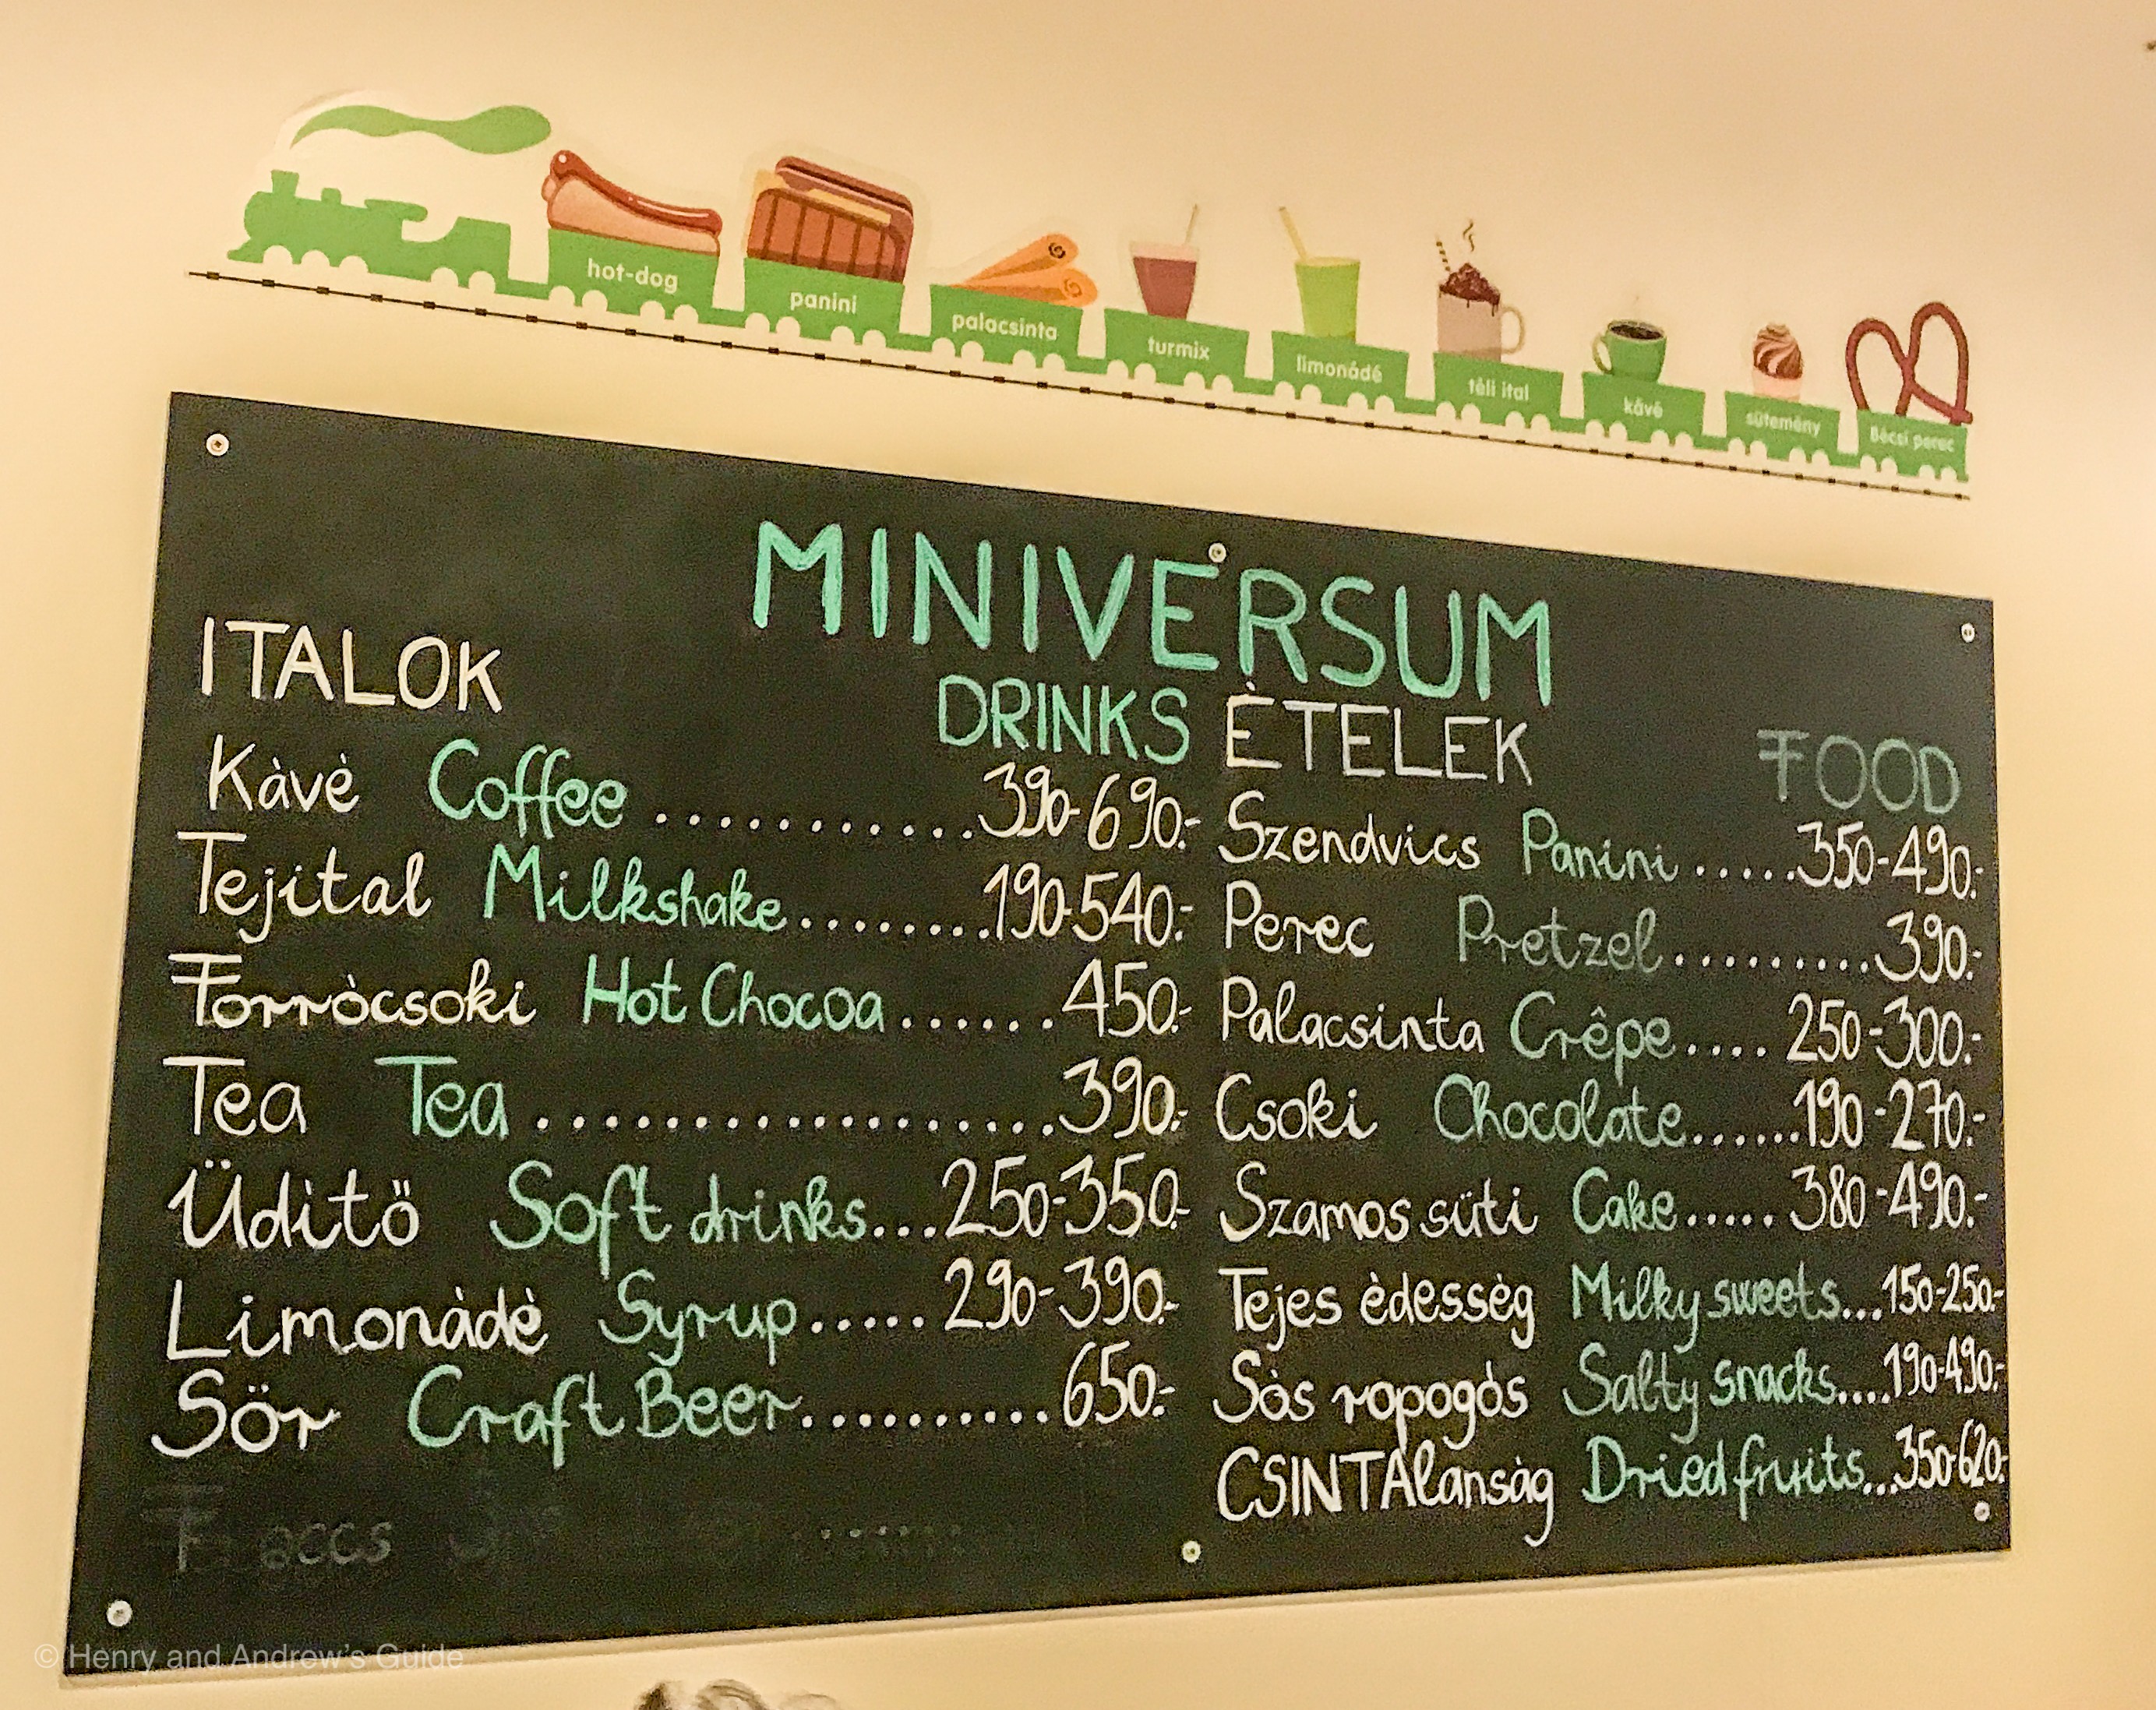 hot-dog
panini
palacsinta
turmix
limonádé
téli ital
kávé
sütemény
Bécsi perec
MINIVERSUM
ITALOK DRINKS
Kàvè Coffee ............390-690.-
Tejital Milkshake.........190-540.-
Forròcsoki Hot Chocoa.......450.-
Tea Tea...................390.-
Üditö Soft drinks...250-350.-
Limonàdè Syrup.....290-390.-
Sör Craft Beer..........650.-
ÈTELEK FOOD
Szendvics Panini.....350-490.-
Perec Pretzel.........390.-
Palacsinta Crêpe....250-300.-
Csoki Chocolate......190-270.-
Szamos süti Cake.....380-490.-
Tejes èdessèg Milky sweets...150-250.-
Sòs ropogòs Salty snacks....190-490.-
CSINTAlansàg Dried fruits...350-620.-
© Henry and Andrew's Guide